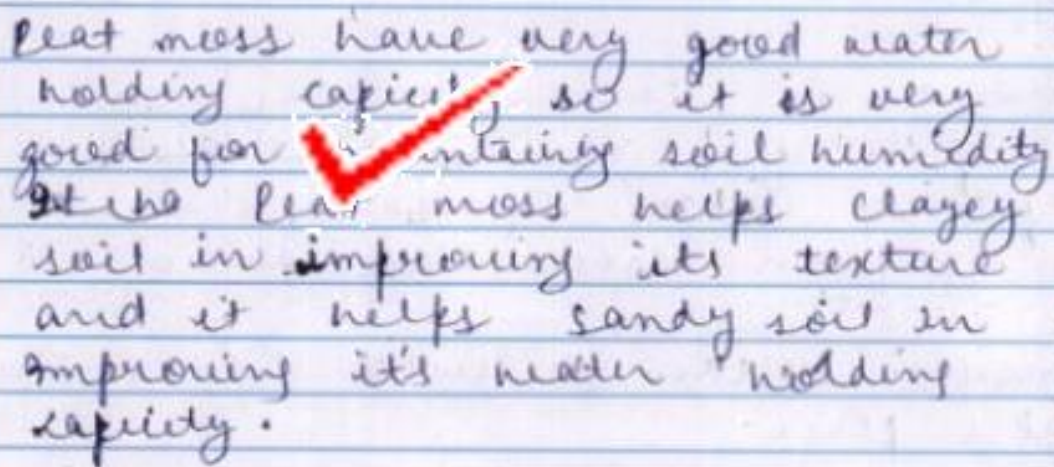 Peat moss have very good water
holding so it is very
good for soil humidity
Peat moss helps clayey
soil in improving its texture
and it helps sandy soil in
improving it's water holding
capicity.